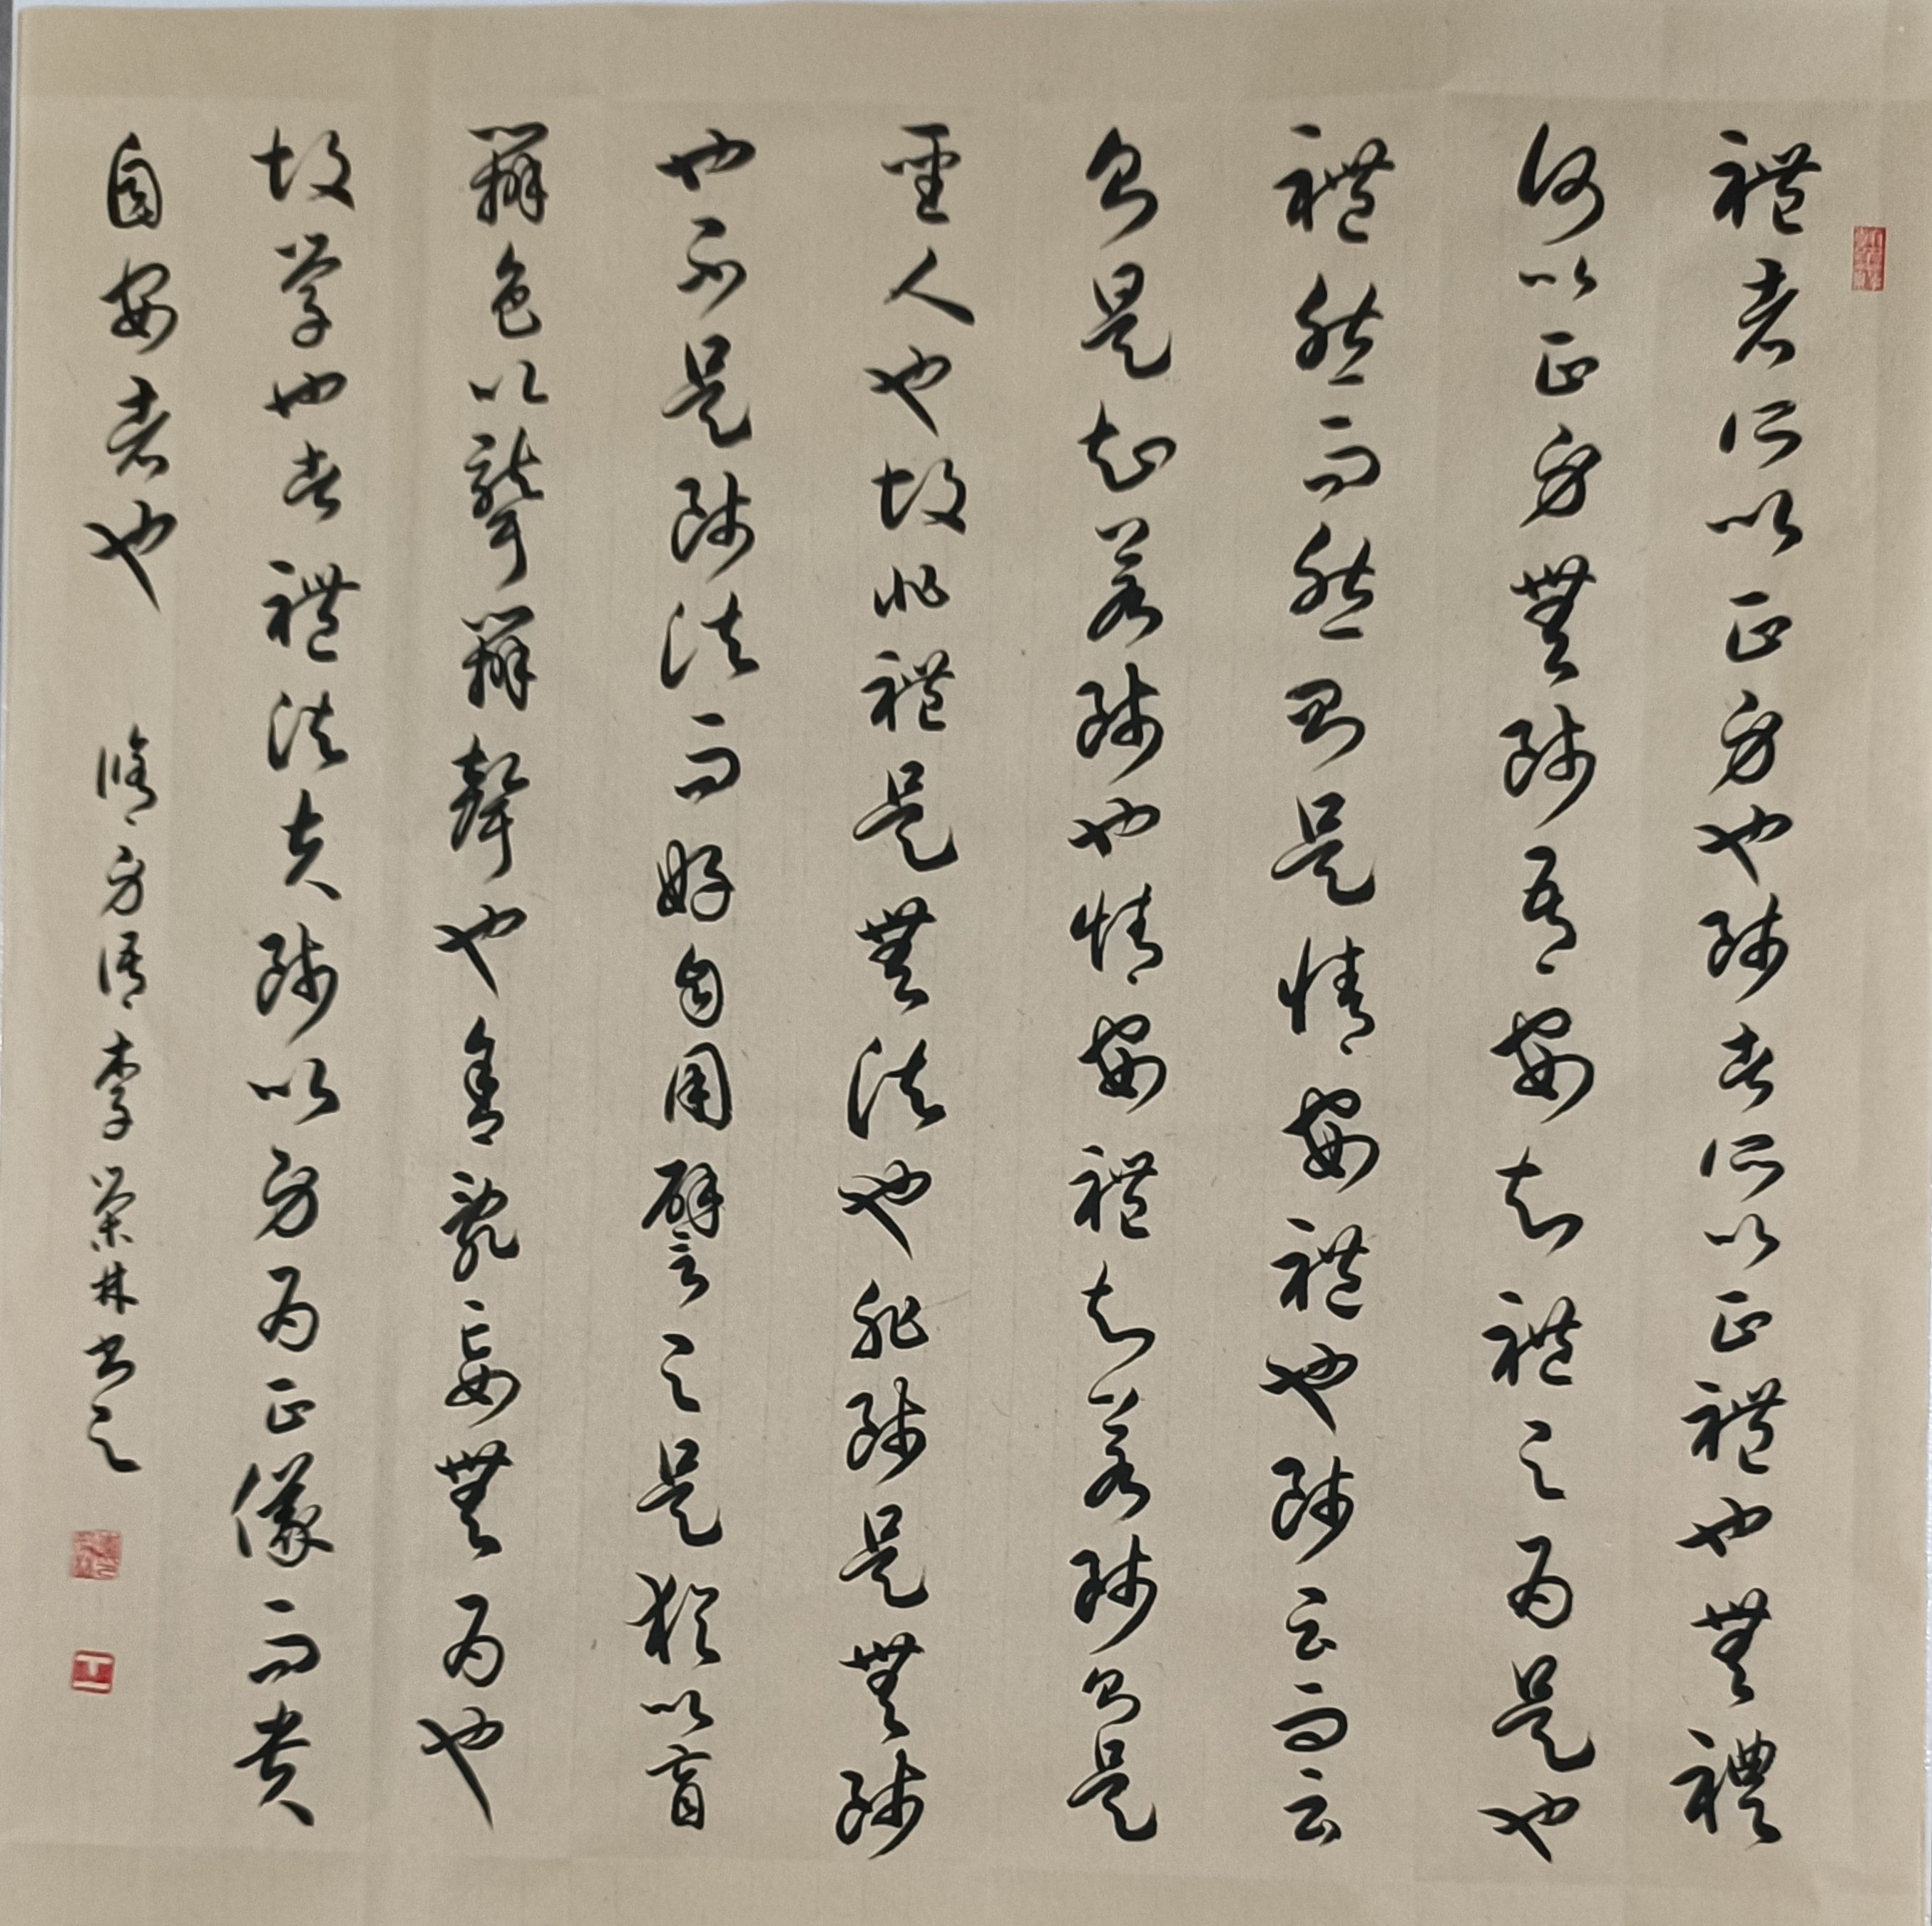 禮者所以正身也師者所以正禮也無禮
何以正身無師吾安知禮之為是也
禮然而然則是情安禮也師云而云
則是知若師也情安禮知若師則是
聖人也故非禮是無法也非師是無師
也不是師法而好自用譬之是猶以盲
辨色以聾辨聲也舍亂妄無為也
故學也者禮法夫師以身為正儀而貴
自安者也 脩身語李榮林書之